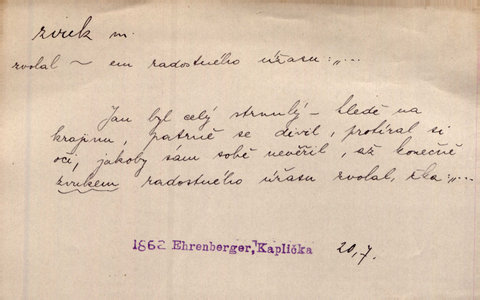 zvuk m.
zvolal ~ em radostného úžasu: „...
Jan byl celý strnulý – hledě na
krajinu, patrně se divil, protíral si
oči, jakoby sám sobě nevěřil, až konečně
zvukem radostného úžasu zvolal, řka: „...
1862 Ehrenberger, Kaplička 20,7.